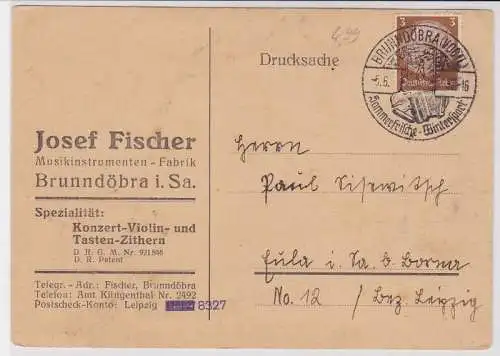 4,99
Drucksache
3
Deutsches Reich
BRUNNDÖBRA (VOGTL)
5.6. -16
Sommerfrische - Wintersport
Josef Fischer
Musikinstrumenten - Fabrik
Brunndöbra i. Sa.
Spezialität:
Konzert-Violin- und
Tasten-Zithern
D. R. G. M. Nr. 921 846
D. R. Patent
Telegr. - Adr.: Fischer, Brunndöbra
Telefon: Amt Klingenthal Nr. 2492
Postscheck-Konto: Leipzig 8327
Herrn
Paul Eisewitsch
Eula i. Sa. b. Borna
No. 12 / Bez. Leipzig